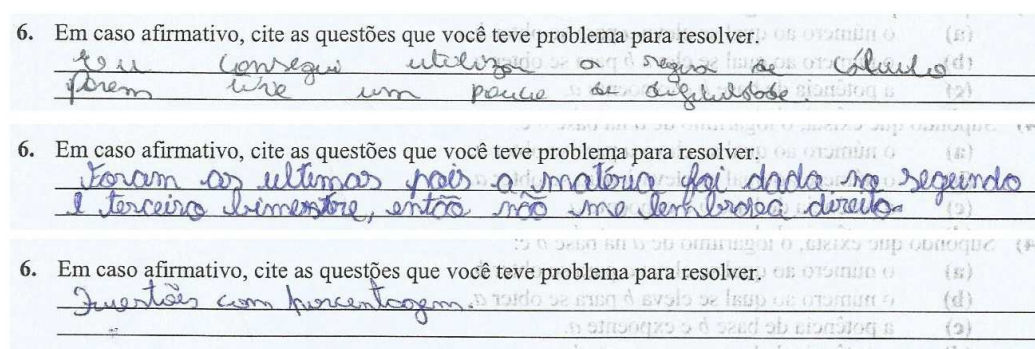 6. Em caso afirmativo, cite as questões que você teve problema para resolver.
eu consegui utilizar a regua de Cálculo
porem tive um pouco de dificuldade.
6. Em caso afirmativo, cite as questões que você teve problema para resolver.
Foram as ultimas pois a matéria foi dada no segundo
e terceiro bimestre, então não me lembrava direito.
6. Em caso afirmativo, cite as questões que você teve problema para resolver.
Questões com porcentagem.